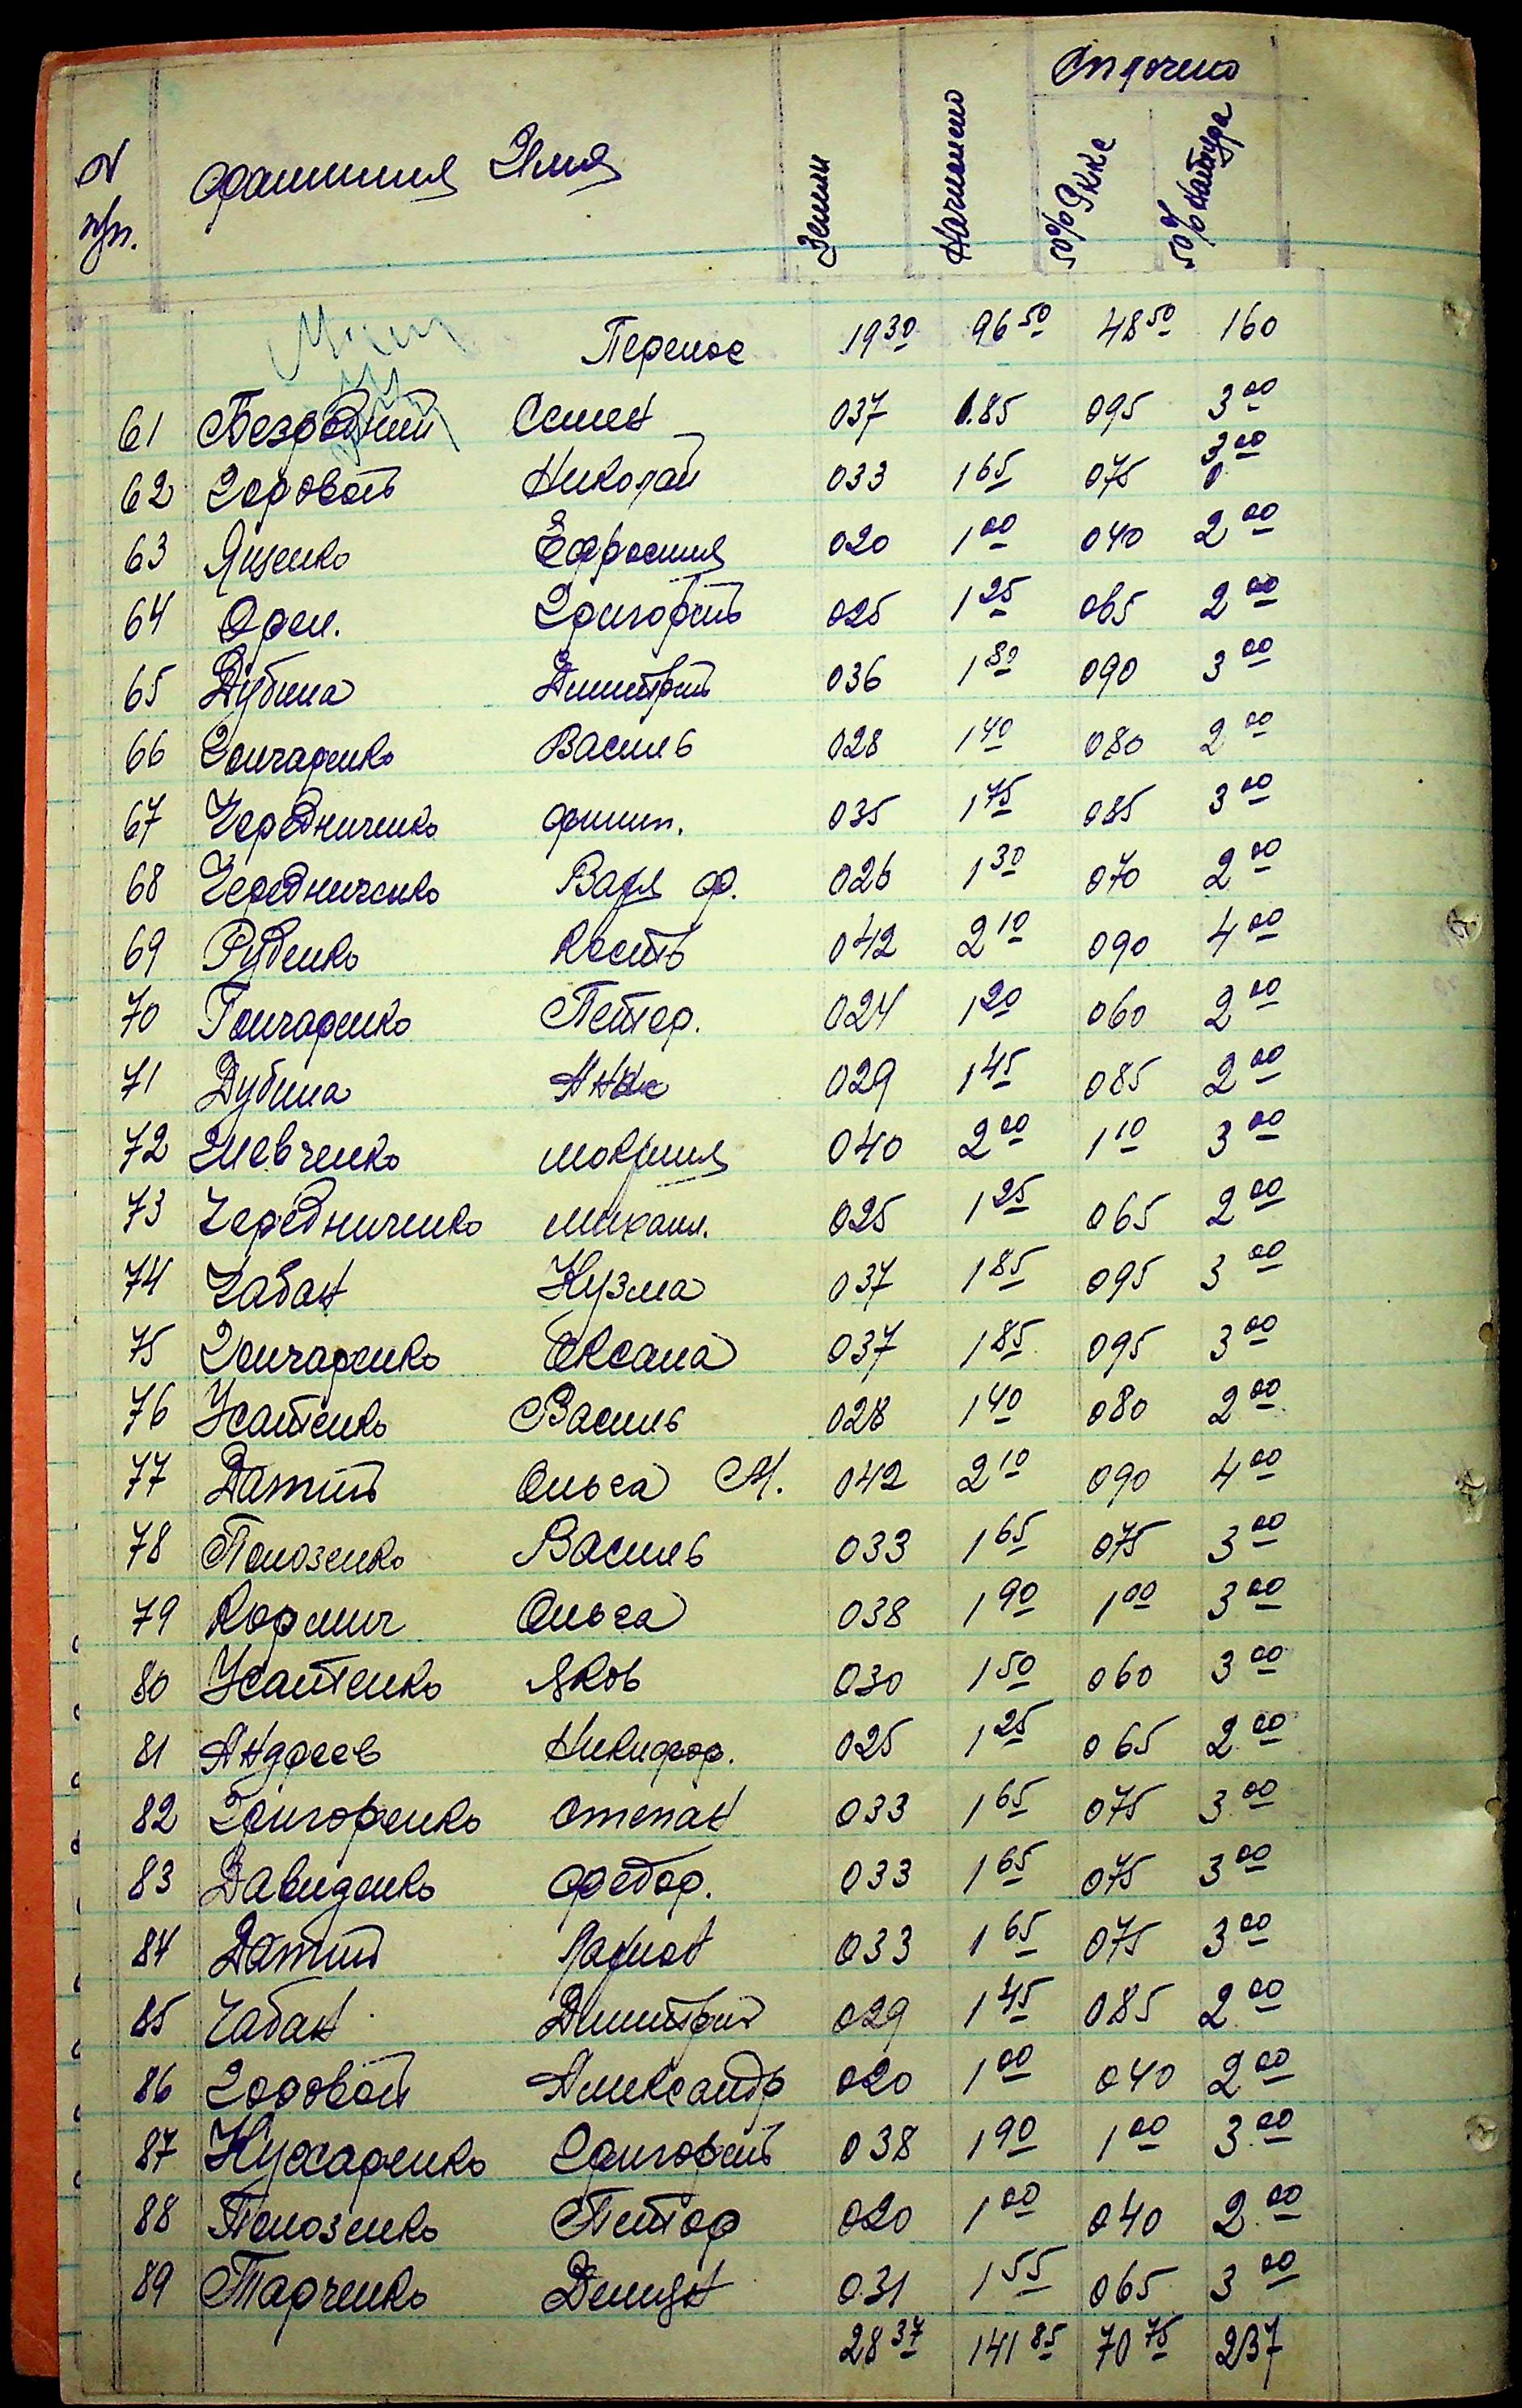 N п/п. Фамилия Имя Земли Начислено Сплочено
50% Ркка 50% натура
Перенос 19 30 96 50 48 50 160
61 Безродний Семен 037 1.85 095 3 00
62 Горовой Николай 033 1 65 075 3 00
63 Яценко Ефросиния 020 1 00 040 2 00
64 Орел. Григорий 025 1 25 065 2 00
65 Дубина Димитрий 036 1 80 090 3 00
66 Гончаренко Василь 028 1 40 080 2 00
67 Чередниченко Филип. 035 1 75 085 3 00
68 Чередниченко Варя Ф. 026 1 30 070 2 00
69 Руденко Кость 042 2 10 090 4 00
70 Гончаренко Петер. 024 1 20 060 2 00
71 Дубина Анна 029 1 45 085 2 00
72 Шевченко Мокриня 040 2 00 1 10 3 00
73 Чередниченко Михаил. 025 1 25 065 2 00
74 Чабан Кузма 037 1 85 095 3 00
75 Гончаренко Оксана 037 1 85 095 3 00
76 Усатенко Василь 028 1 40 080 2 00
77 Датий Ольга М. 042 2 10 090 4 00
78 Полозенко Василь 033 1 65 075 3 00
79 Кормич Ольга 038 1 90 1 00 3 00
80 Усатенко Яков 030 1 50 060 3 00
81 Андреев Никифор. 025 1 25 065 2 00
82 Григоренко Степан 033 1 65 075 3 00
83 Давиденко Федор. 033 1 65 075 3 00
84 Датий Ларион 033 1 65 075 3 00
85 Чабан Димитрий 029 1 45 085 2 00
86 Горовой Александр 020 1 00 040 2 00
87 Кухаренко Григорий 038 1 90 1 00 3 00
88 Полозенко Петор 020 1 00 040 2 00
89 Тарченко Демян 031 1 55 065 3 00
28 37 141 85 70 75 237